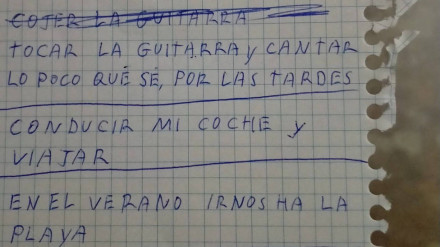 COJER LA GUITARRA
TOCAR LA GUITARRA y CANTAR
LO POCO QUÉ SÉ, POR LAS TARDES
CONDUCIR MI COCHE y
VIAJAR
EN EL VERANO IRNOS HA LA
PLAYA